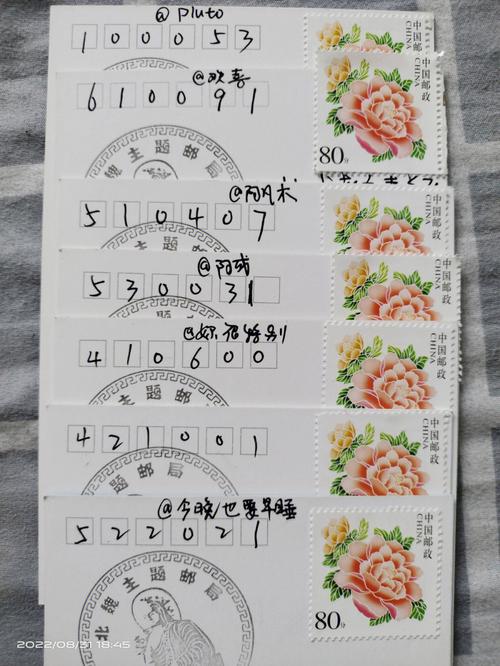 @pluto
100053
中国邮政
CHINA
@欢喜
610091
中国邮政
CHINA
80分
魏主题邮局
@阿凡术
510407
中国邮政
CHINA
主题邮
530031
中国邮政
CHINA
主题
410600
中国邮政
CHINA
主题邮
421001
中国邮政
CHINA
主题邮局
@今晚也要早睡
522021
中国邮政
CHINA
80分
北魏主题邮局
2022/08/31 18:45